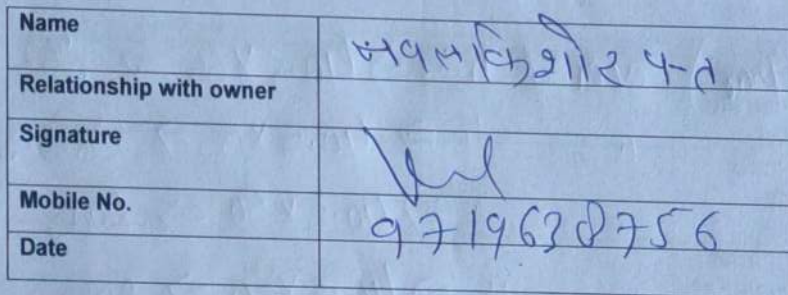 Name नवल किशोर पन्त
Relationship with owner
Signature
Mobile No. 9719638756
Date